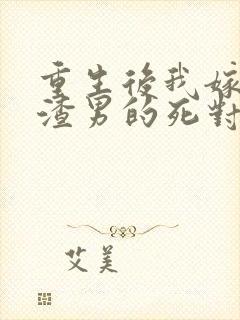 重生後我嫁
渣男的死對
艾美